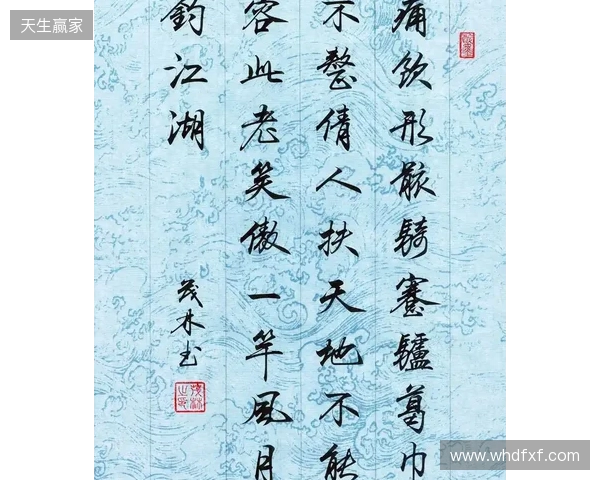 天生赢家
痛飲形骸騎蹇驢葛巾
不整倩人扶天地不能
容此老笑傲一竿風月
釣江湖
茂林书
www.whdfxf.com